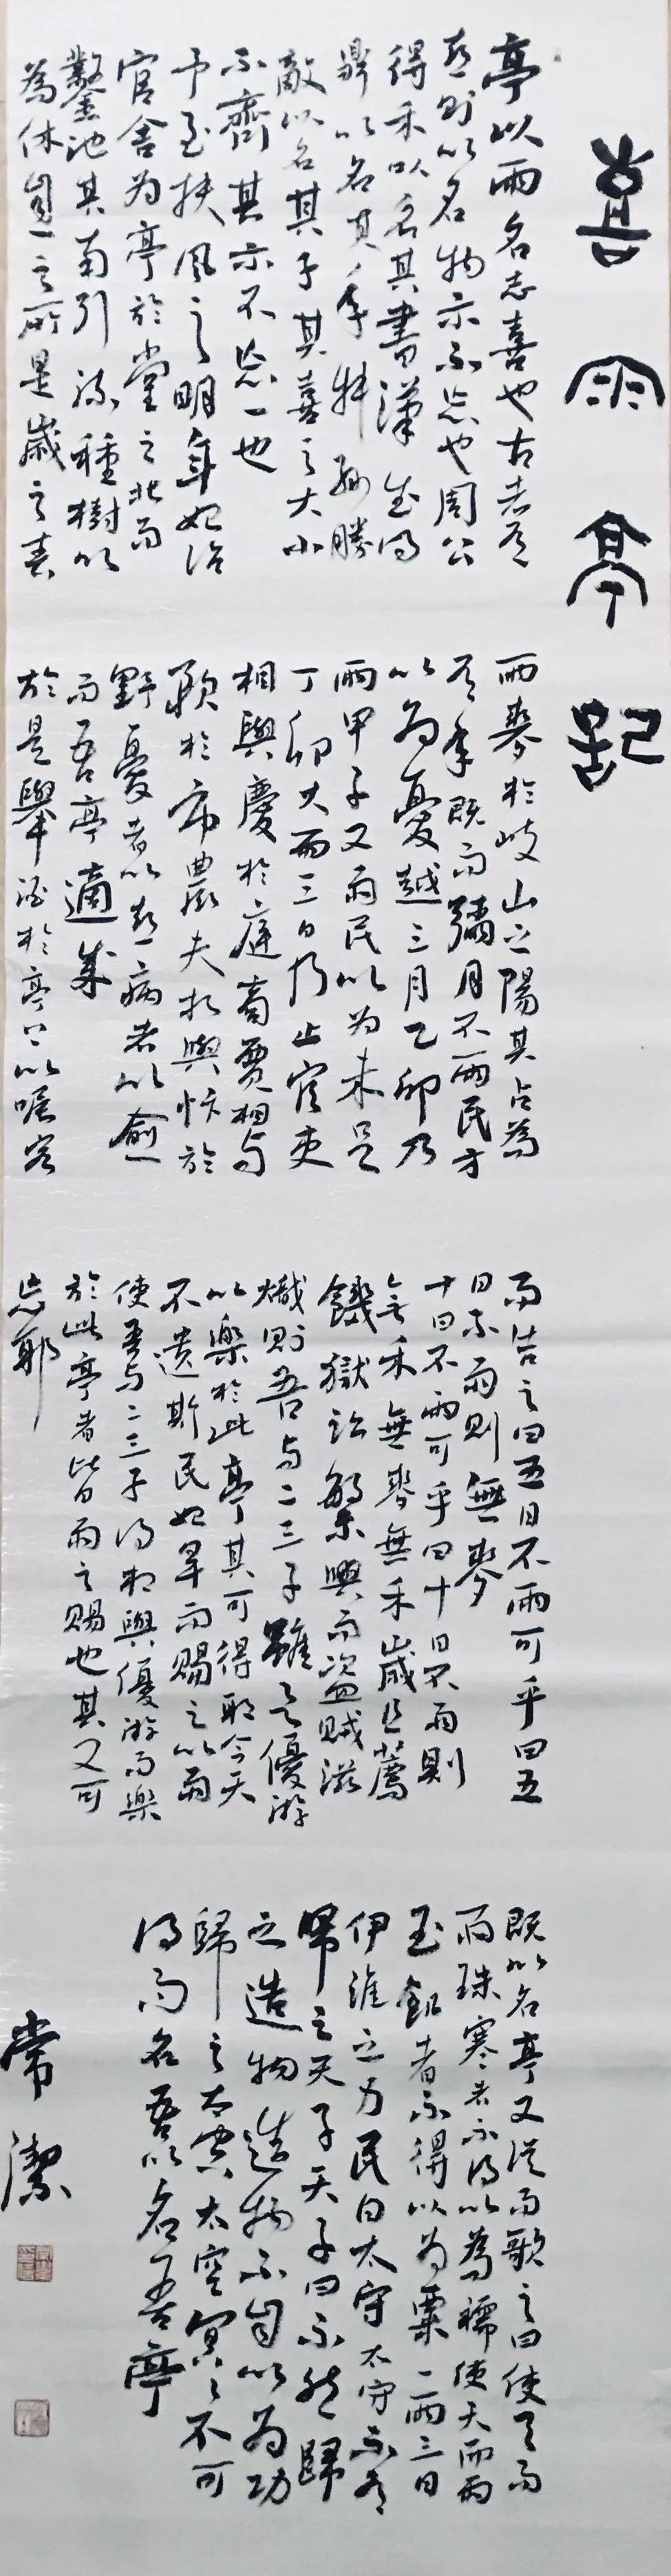 喜雨亭記
亭以雨名志喜也古者有
喜則以名物示不忘也周公
得禾以名其書漢武得
鼎以名其年叔孫勝
敵以名其子其喜之大小
不齊其示不忘一也
予至扶風之明年始治
官舍为亭於堂之北而
鑿池其南引流種樹以
為休息之所是歲之春
雨麥於岐山之陽其占為
有年既而彌月不雨民方
以为憂越三月乙卯乃
雨甲子又雨民以为未足
丁卯大雨三日乃止官吏
相與慶於庭商賈相与
歌於市農夫相與忭於
野憂者以喜病者以愈
而吾亭適成
於是舉酒於亭上以囑客
而告之曰五日不雨可乎曰五
日不雨則無麥
十日不雨可乎曰十日不雨則
無禾無麥無禾歲且薦
饑獄訟繁興而盜賊滋
熾則吾与二三子雖欲優游
以樂於此亭其可得耶今天
不遺斯民始旱而賜之以雨
使吾与二三子得相與優游而樂
於此亭者皆雨之賜也其又可
忘耶
既以名亭又從而歌之曰使天而
雨珠寒者不得以為襦使天而雨
玉飢者不得以为粟一雨三日
伊誰之力民曰太守太守不有
歸之天子天子曰不然歸
之造物造物不自以为功
歸之太空太空冥冥不可
得而名吾以名吾亭
常潔